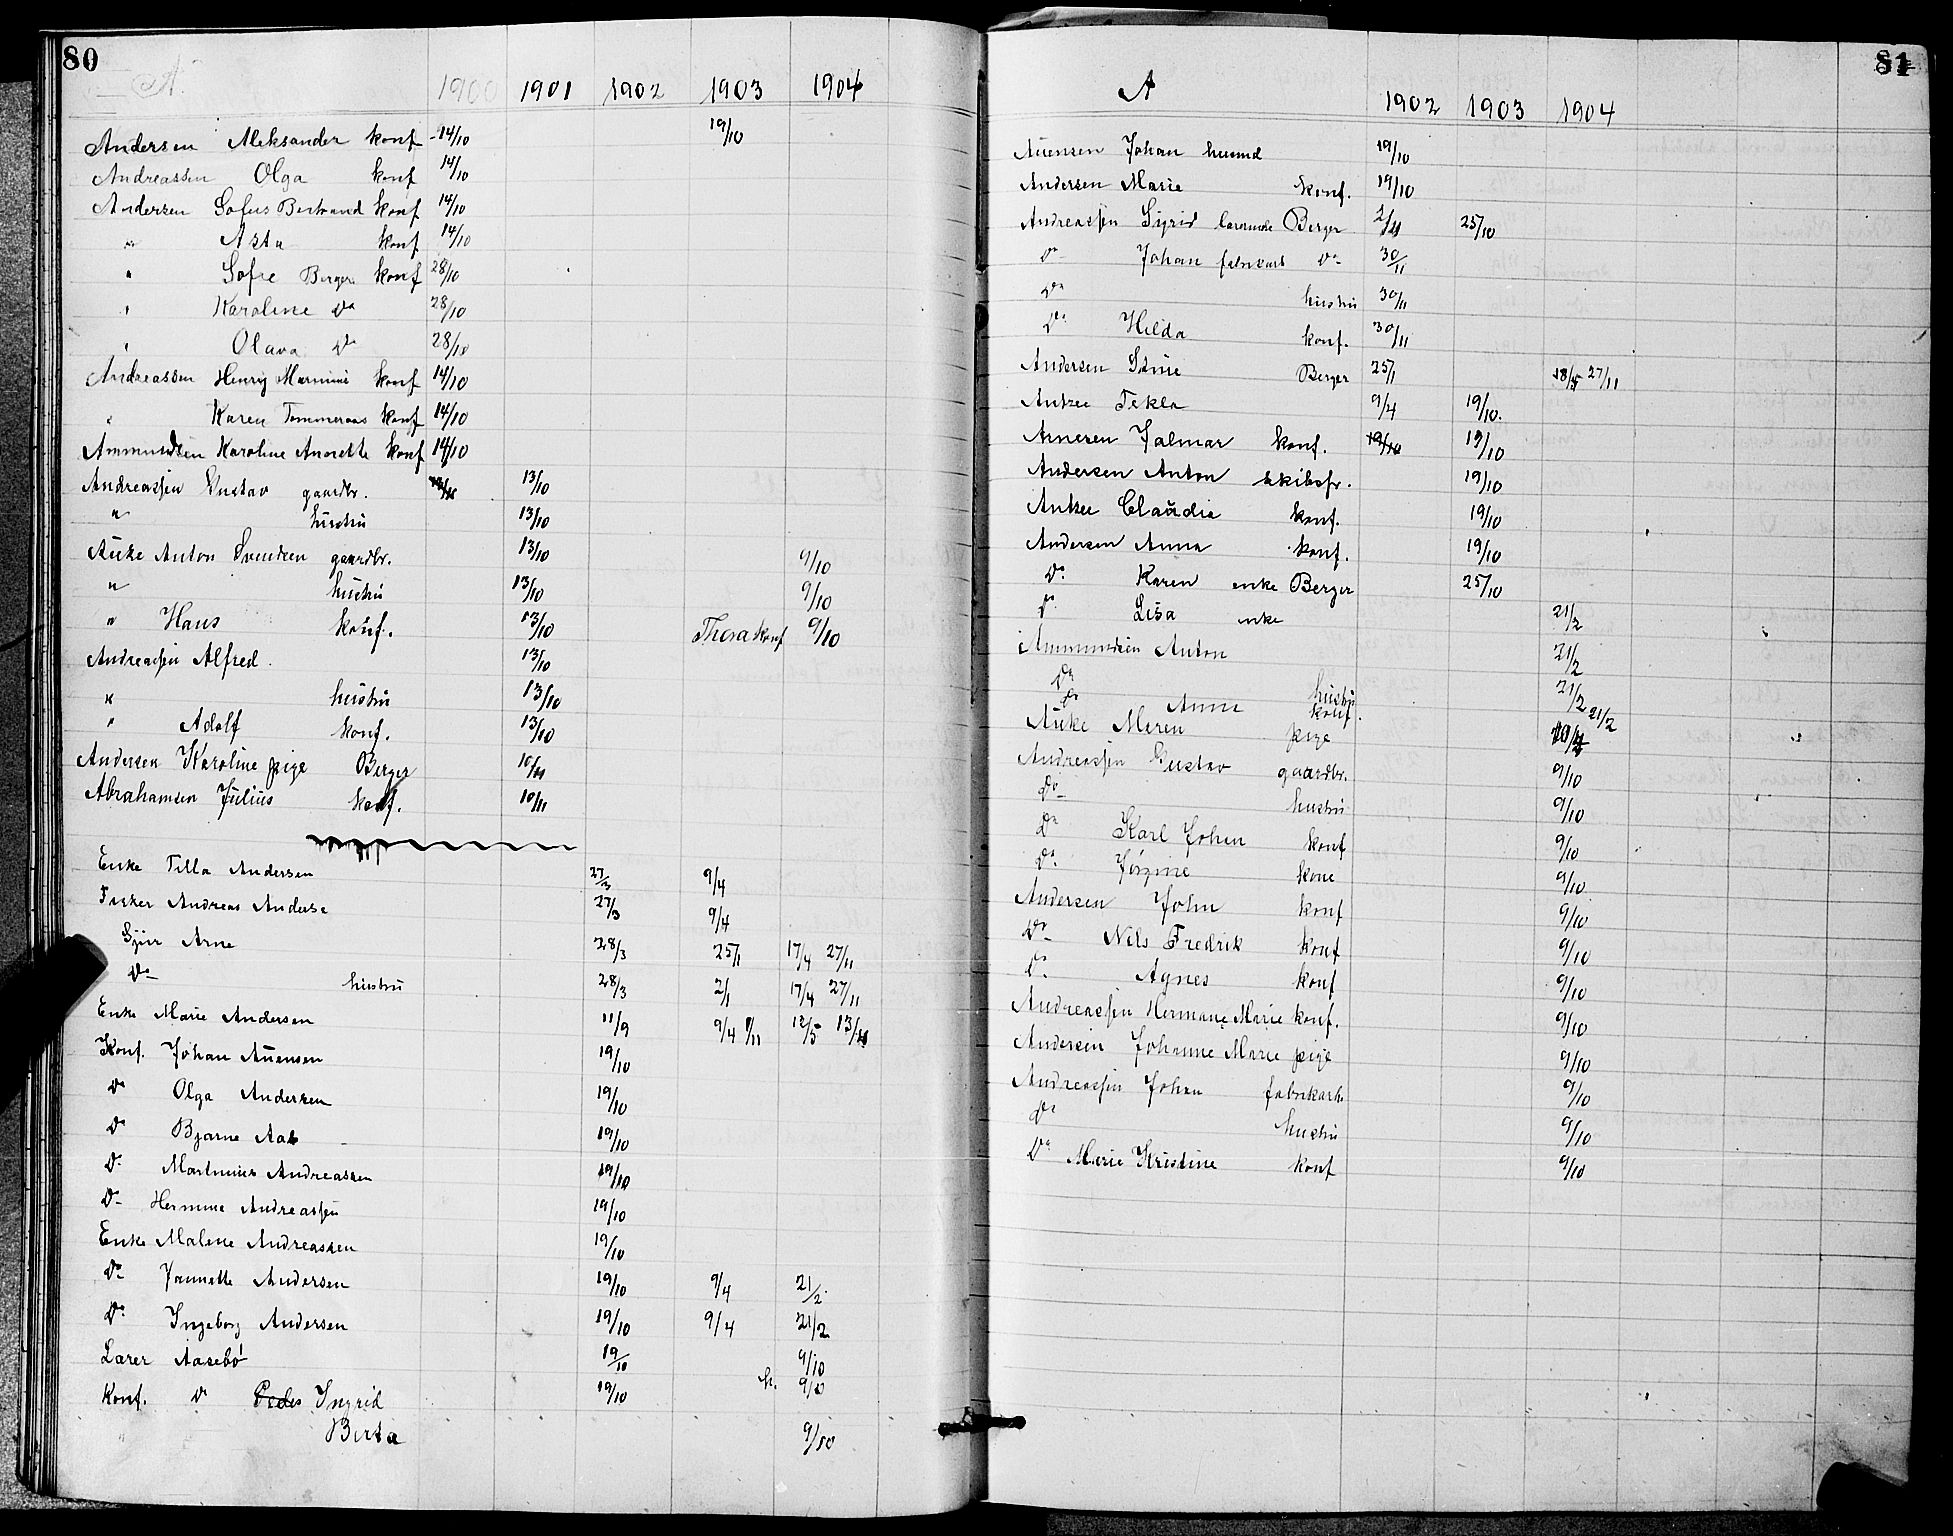 80
A.
1900 1901 1902 1903 1904
Andersen Aleksander konf 14/10 19/10
Andreassen Olga konf 14/10
Andersen Sofus Bertrand konf 14/10
" Asta konf 14/10
" Sofie Berger konf 28/10
" Karoline Do 28/10
" Olava Do 28/10
Andreassen Henry Marinius konf 14/10
" Karen Tommeraas konf 14/10
Ammundsen Karoline Anorette konf 14/10
Andreassen Gustav gaardbr. 13/10
" hustru 13/10
Auke Anton Svendsen gaardbr. 13/10 9/10
" hustru 13/10 9/10
" Hans konf. 13/10 Thora konf 9/10
Andreassen Alfred. 13/10
" hustru 13/10
" Adolf konf. 13/10
Andersen Karoline pige Berger 10/11
Abrahamsen Julius konf. 10/11
Enke Tilla Andersen 27/3 9/4
Andreas Anderse 27/3 9/4
Arne 28/3 25/1 17/4 27/11
Do hustru 28/3 2/1 17/4 27/11
Enke Marie Andersen 11/9 9/4 1/11 12/5 13/11
Konf. Johan Auensen 19/10
Do Olga Andersen 19/10
Do Bjarne Aas 19/10
Do Martinius Andreassen 19/10
Do Hermine Andreassen 19/10
Enke Malene Andreassen 19/10
Do Jannette Andersen 19/10 9/4 21/2
Do Ingeborg Andersen 19/10 9/4 21/2
Lærer Aasebö 19/10 9/10
Konf. Do Peder Ingrid 19/10 h. 9/10
Berta 9/10
81
A
1902 1903 1904
Auensen Johan husmd 19/10
Andersen Marie konf. 19/10
Andreassen Sigrid lærerinde Berger 2/11 25/10
Do Johan fabrikarb Do 30/11
Do hustru 30/11
Do Hilda konf. 30/11
Andersen Stine Berger 25/1 18/5 27/11
Anker Tekla 9/4 19/10.
Arnesen Jalmar konf. 19/10 19/10
Andersen Anton skibsfr. 19/10
Anker Claudia konf. 19/10
Andersen Anna konf. 19/10
Do Karen enke Berger 25/10
Do Lisa enke 21/2
Ammundsen Anton 21/2
Do hustru 21/2
Do Anne konf. 21/2
Auke Meren pige
Andreassen Gustav gaardbr. 9/10
Do hustru 9/10
Do Karl Johan konf 9/10
Do Jörgine kone 9/10
Andersen John konf 9/10
Do Nils Fredrik konf 9/10
Do Agnes konf 9/10
Andreassen Hermane Marie konf. 9/10
Andersen Johanne Marie pige 9/10
Andreassen Johan fabrikarb 9/10
Do hustru 9/10
Do Marie Kristine konf 9/10